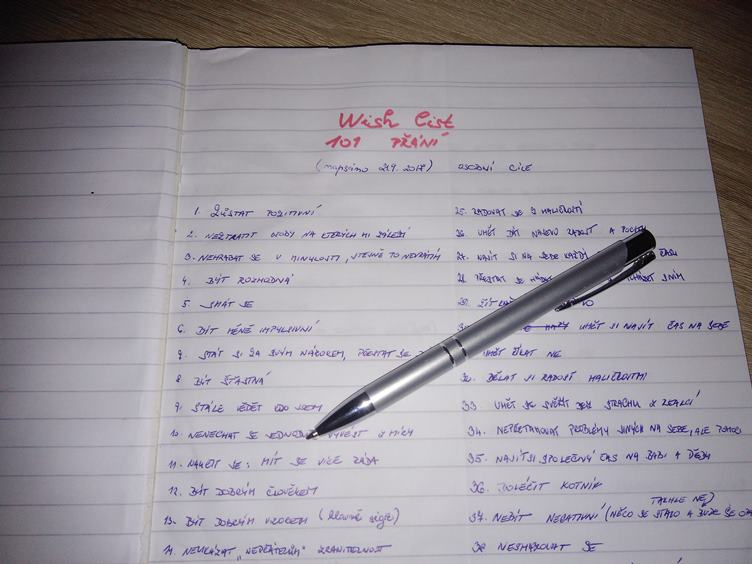 Wish list
101 PŘÁNÍ
(napsáno 21.9. 2018) OSOBNÍ CÍLE
1. ZŮSTAT POZITIVNÍ
2. NEZTRATIT OSOBY NA KTERÝCH MI ZÁLEŽÍ
3. NEHRABAT SE V MINULOSTI, STEJNĚ TO NEZMĚNÍM
4. BÝT ROZHODNÁ
5. SMÁT SE
6. BÝT MÉNĚ IMPULSIVNÍ
7. STÁT SI ZA SVÝM NÁZOREM, PŘESTAT SE
8. BÝT ŠŤASTNÁ
9. STÁLE VĚDĚT KDO JSEM
10. NENECHAT SE JEDNODUŠE VYVÉST Z MÍRY
11. NAUČIT SE: MÍT SE VÍCE RÁDA
12. BÝT DOBRÝM ČLOVĚKEM
13. BÝT DOBRÝM VZOREM (hlavně ségře)
14. NEUKÁZAT „NEPŘÁTELŮM" ZRANITELNOST
25. RADOVAT SE Z MALIČKOSTÍ
26. UMĚT DÁT NAJEVO RADOST A
27. NAJÍT SI NA SEBE KAŽDÝ ČASU
28. PŘESTAT SE S NÍM
29. ŽÍT
UMĚT SI NAJÍT ČAS NA SEBE
UMĚT ŘÍKAT NE
32. DĚLAT SI RADOST MALIČKOSTMI
33. UMĚT SE SVĚŘIT BEZ STRACHU Z REAKCÍ
34. NEPŘETAHOVAT PROBLÉMY JINÝCH NA SEBE, ALE POMOCI
35. NAJÍT SI SPOLEČNÝ ČAS NA BÁBI A DĚDU
36. DOLÉČIT KOTNÍK
37. NEBÝT NEGATIVNÍ (TAKHLE NE) (NĚCO SE STALO A BUDE SE
38. NESMAŽOVAT SE